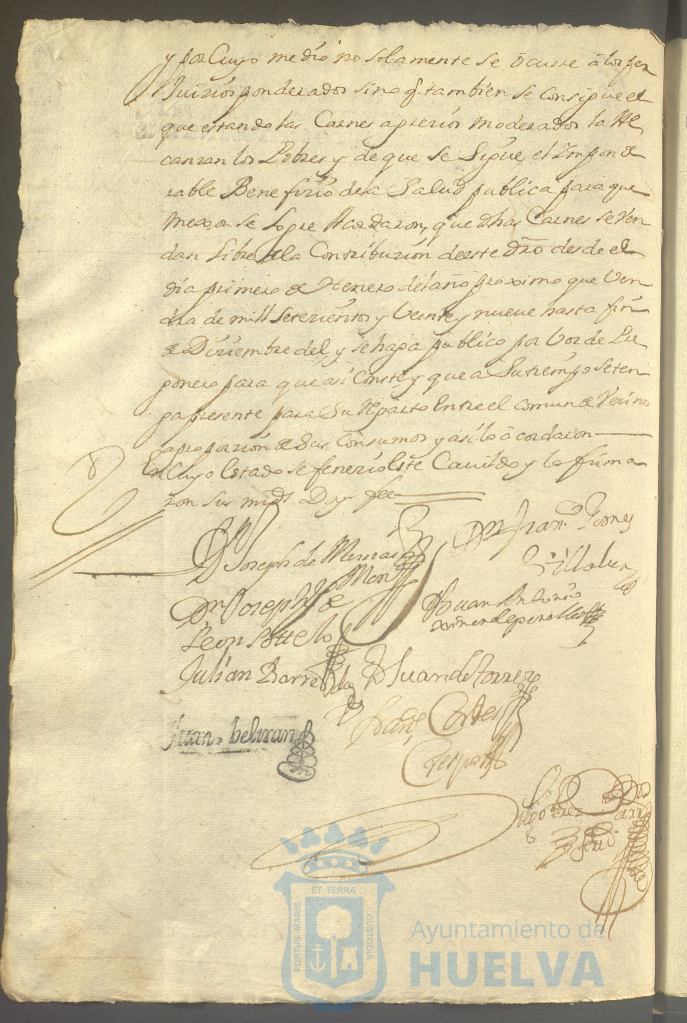 y por Cuyo medio no solamente se ocurre â los per
Juizios ponderados sino q. tambien se consigue el
que estando las Carnes a prezios moderados la Al
canzan los Pobres y de que se Sigue el Impon de
rable Benefizio de la Salud publica para que
mexor se logre Acordaron, que dhas Carnes se Ven
dan libres de la Contribuzion de este Dro desde el
dia primero de Henero del año proximo que Ven
dra de mill setezientos y Veinte y nueve hasta fin
de Diziembre del y se haga publico por Voz de Pre
gonero para que asi Conste y que a Su tiempo se ten
ga presente para Su Reparto Entre el comun de Vezinos
a proporzion de Sus Consumos y asi lo acordaron
En Cuyo Estado se fenezio Este Cavildo y lo firma
ron sus mrds Doy fee
Dn Joseph de
Dn Fran.co Gomez
Villalva
Dn Joseph de
Leon
Dn Juan Antonio
Julian Barreda
Dn Juan de Torres
Fran.co Cortes
Crespo
Juan beltran
Diego
ET TERRA
PORTUS MARIS
CUSTODIA
Ayuntamiento de
HUELVA